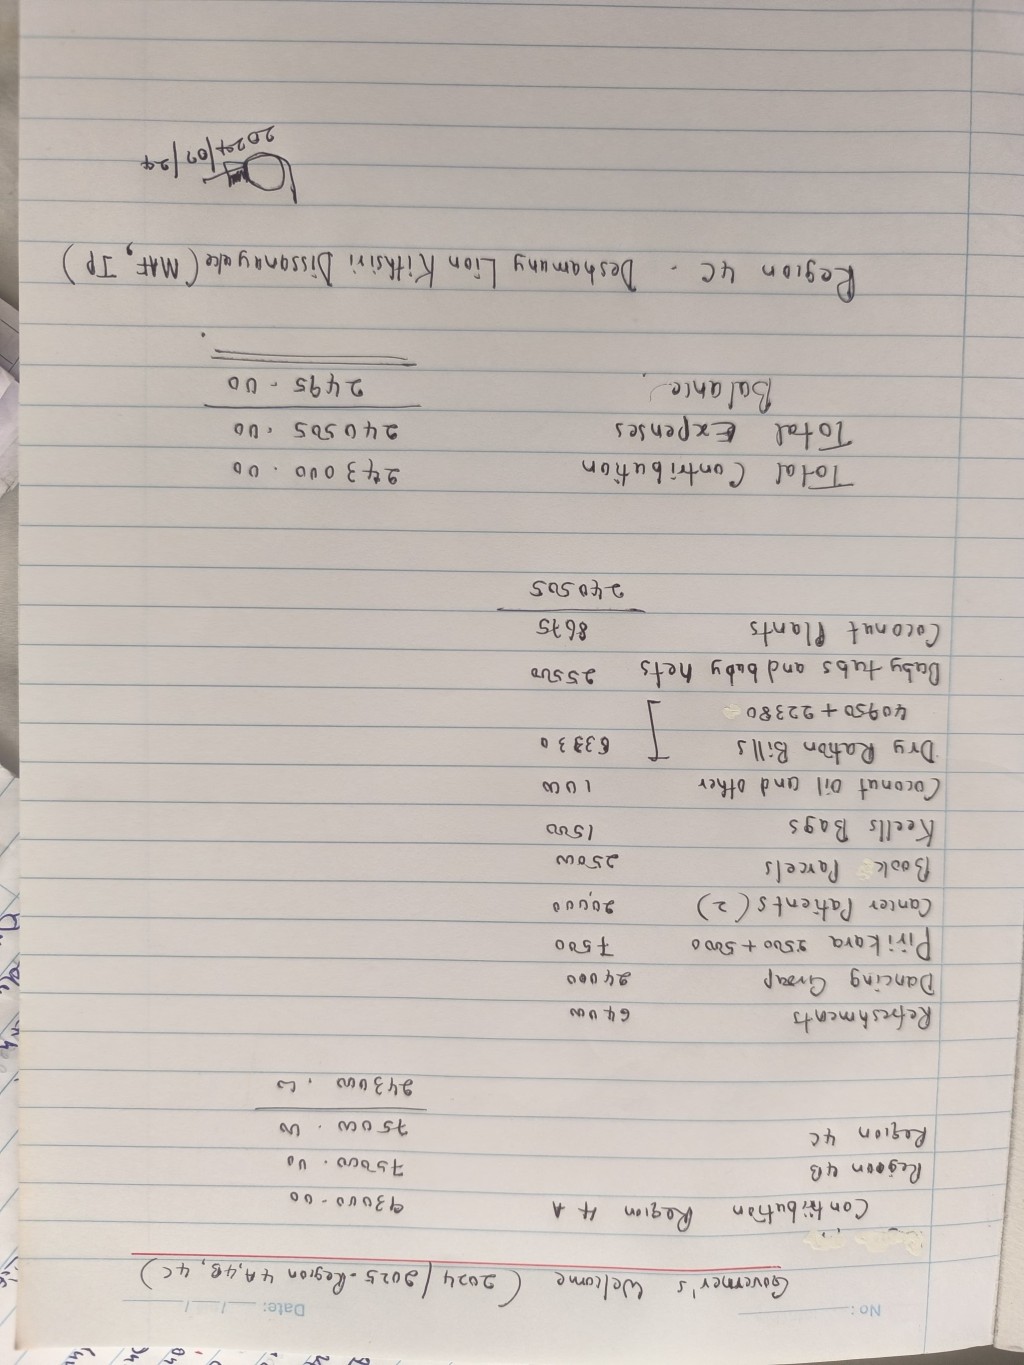 No: Date: / /
Governer's Welcome (2024/2025-Region 4A,4B,4C)
Contribution Region 4A 93000-00
Region 4B 75000.00
Region 4C 75000.00
243000.00
Refreshments 64000
Dancing Group 24000
Pirikara 2500+5000 7500
Cancer Patients (2) 20,000
Book Parcels 25000
Keells Bags 1500
Coconut oil and other 1000
Dry Ration Bills ] 63330
40950+22380
Baby tubs and baby nets 25500
Coconut Plants 8675
240505
Total Contribution 243000.00
Total Expenses 240505.00
Balance 2495-00
Region 4C - Deshamany Lion Kithsiri Dissanayake (MAF, JP)
2024/07/24